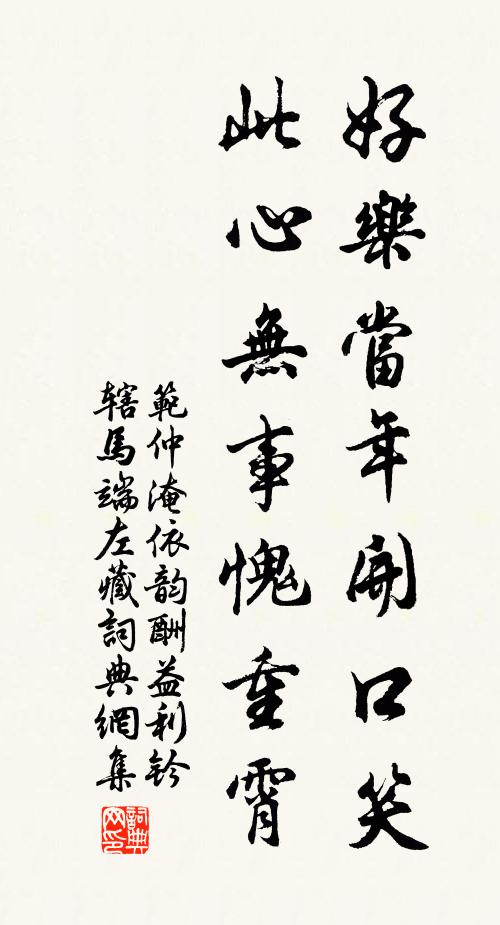 好樂當年開口笑
此心無事愧重霄
範仲淹依韵酬益利鈐
辖馬端左藏詞典網集
詞典
网印